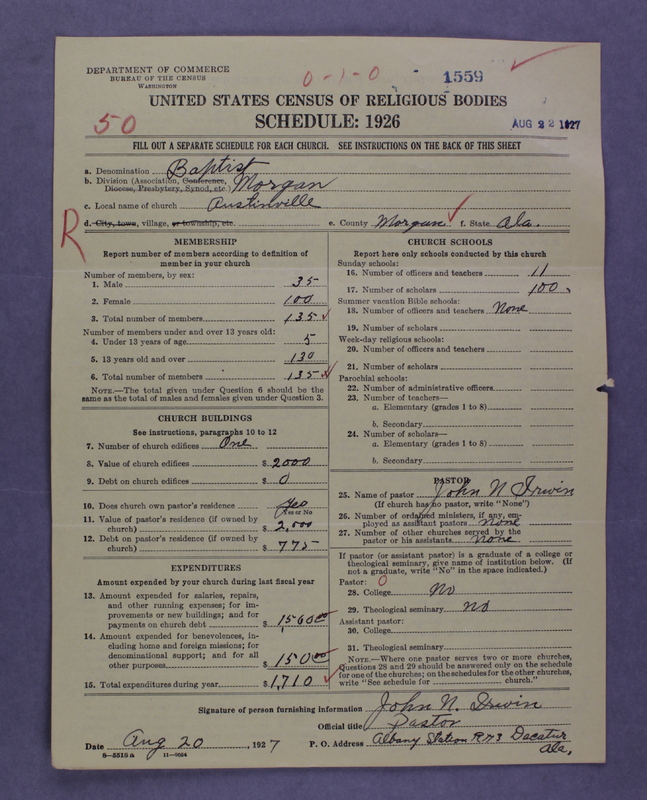 DEPARTMENT OF COMMERCE
BUREAU OF THE CENSUS
WASHINGTON
0-1-0
1559
UNITED STATES CENSUS OF RELIGIOUS BODIES
50
SCHEDULE: 1926
AUG 22 1927
FILL OUT A SEPARATE SCHEDULE FOR EACH CHURCH. SEE INSTRUCTIONS ON THE BACK OF THIS SHEET
a. Denomination Baptist
b. Division (Association, Conference, Diocese, Presbytery, Synod, etc.) Morgan
c. Local name of church Austinville
R
d. City, town, village, or township, etc. e. County Morgan f. State Ala.
MEMBERSHIP
Report number of members according to definition of
member in your church
Number of members, by sex:
1. Male 35
2. Female 100
3. Total number of members 135
Number of members under and over 13 years old:
4. Under 13 years of age 5
5. 13 years old and over 130
6. Total number of members 135
NOTE.—The total given under Question 6 should be
the same as the total of males and females given under Question 3.
CHURCH BUILDINGS
See instructions, paragraphs 10 to 12
7. Number of church edifices One
8. Value of church edifices $ 2000
9. Debt on church edifices $ 0
10. Does church own pastor's residence Yes
Yes or No
11. Value of pastor's residence (if owned by
church) $ 2,000
12. Debt on pastor's residence (if owned by
church) $ 775
EXPENDITURES
Amount expended by your church during last fiscal year
13. Amount expended for salaries, repairs,
and other running expenses; for im-
provements or new buildings; and for
payments on church debt $ 1560 00
14. Amount expended for benevolences, in-
cluding home and foreign missions; for
denominational support; and for all
other purposes $ 150 00
15. Total expenditures during year $ 1,710
CHURCH SCHOOLS
Report here only schools conducted by this church
Sunday schools:
16. Number of officers and teachers 11
17. Number of scholars 100
Summer vacation Bible schools:
18. Number of officers and teachers None
19. Number of scholars
Week-day religious schools:
20. Number of officers and teachers
21. Number of scholars
Parochial schools:
22. Number of administrative officers
23. Number of teachers—
a. Elementary (grades 1 to 8)
b. Secondary
24. Number of scholars—
a. Elementary (grades 1 to 8)
b. Secondary
PASTOR
25. Name of pastor John N Irwin
(If church has no pastor, write "None")
26. Number of ordained ministers, if any, em-
ployed as assistant pastors none
27. Number of other churches served by the
pastor or his assistants none
If pastor (or assistant pastor) is a graduate of a college or
theological seminary, give name of institution below. (If
not a graduate, write "No" in the space indicated.)
Pastor: 0
28. College No
29. Theological seminary no
Assistant pastor:
30. College
31. Theological seminary
NOTE.—Where one pastor serves two or more churches,
Questions 28 and 29 should be answered only on the schedule
for one of the churches; on the schedules for the other churches,
write "See schedule for church."
Signature of person furnishing information John N. Irwin
Official title Pastor
Date Aug 20, 1927 P. O. Address Albany Station R#3 Decatur
Ala.
8—5515 a